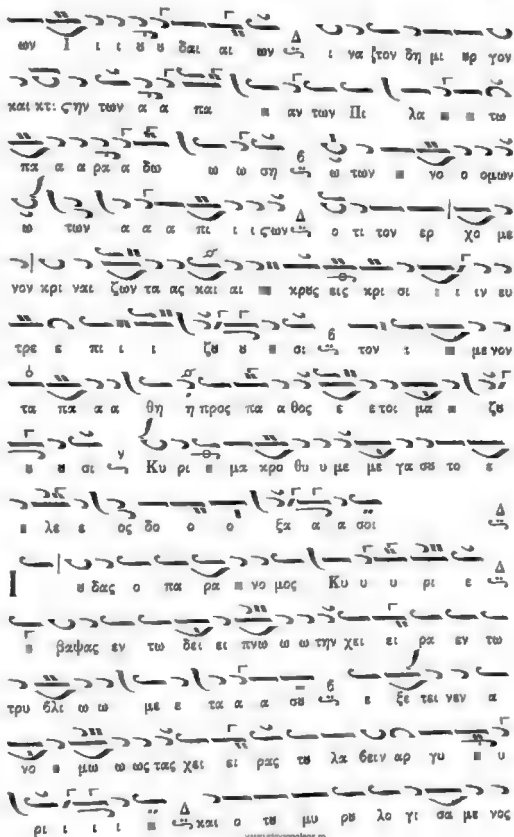 ων Ι ι ι ȣ ȣ δαι αι ων Δ ι να ξτον δη μι ȣρ γον
και κτι ςην των α α πα αν των Πι λα τω
πα α α ρα α δω ω ω ση β ω των νο ο ομων
ω των α α α πι ι ι ςων Δ ο τι τον ερ χο με
νον κρι ναι ζων τα ας και αι κρȣς εις κρι σι ι ι ιν ευ
τρε ε πι ι ι ζȣ ȣ σι β τον ι μενον
τα πα α α θη η προς πα α θος ε ετοι μα ζȣ
ȣ ȣ σι γ Κυ ρι μα κρο θυ υ με με γα σȣ το ε
λε ε ος δο ο ο ξα α α σοι Δ
Ι ȣ δας ο πα ρα νο μος Κυ υ υ ρι ε Δ
βαψας εν τω δει ει πνω ω ω την χει ει ρα εν τω
τρυ βλι ω ω με ε τα α α σȣ β ε ξε τει νεν α
νο μω ω ως τας χει ει ρας τȣ λα βειν αρ γυ υ
ρι ι ι ι Δ και ο τȣ μυ ρȣ λο γι σα με νος